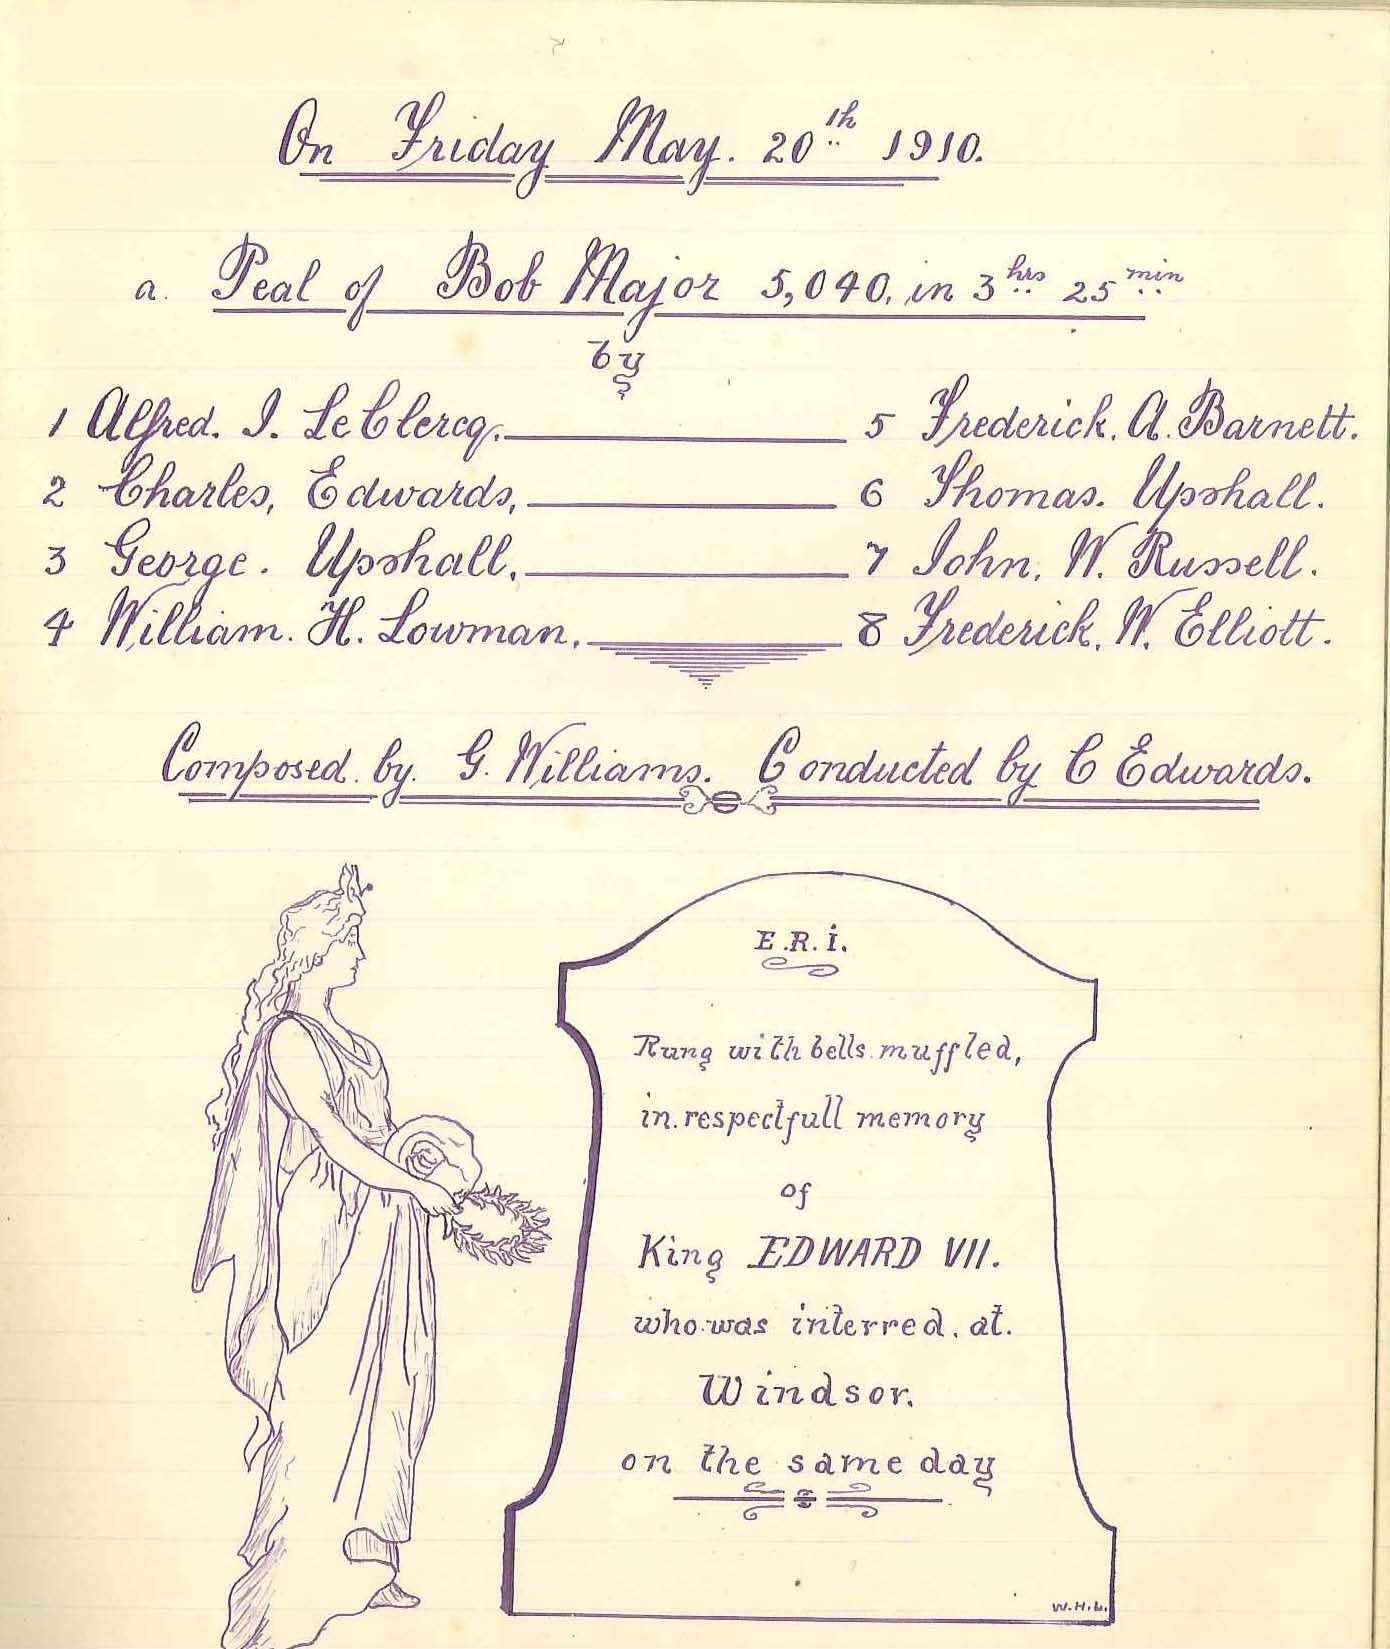 On Friday May. 20th 1910.
a. Peal of Bob Major 5,040, in 3 hrs 25 min
by
1 Alfred. I. Le Clercq. 5 Frederick. A. Barnett.
2 Charles, Edwards, 6 Thomas. Upshall.
3 George. Upshall, 7 John. W. Russell.
4 William. H. Lowman, 8 Frederick, W. Elliott.
Composed. by. G. Williams. Conducted by C Edwards.
E.R.i.
Rung with bells muffled,
in. respectfull memory
of
King EDWARD VII.
who was interred. at.
Windsor.
on the same day
W.H.L.